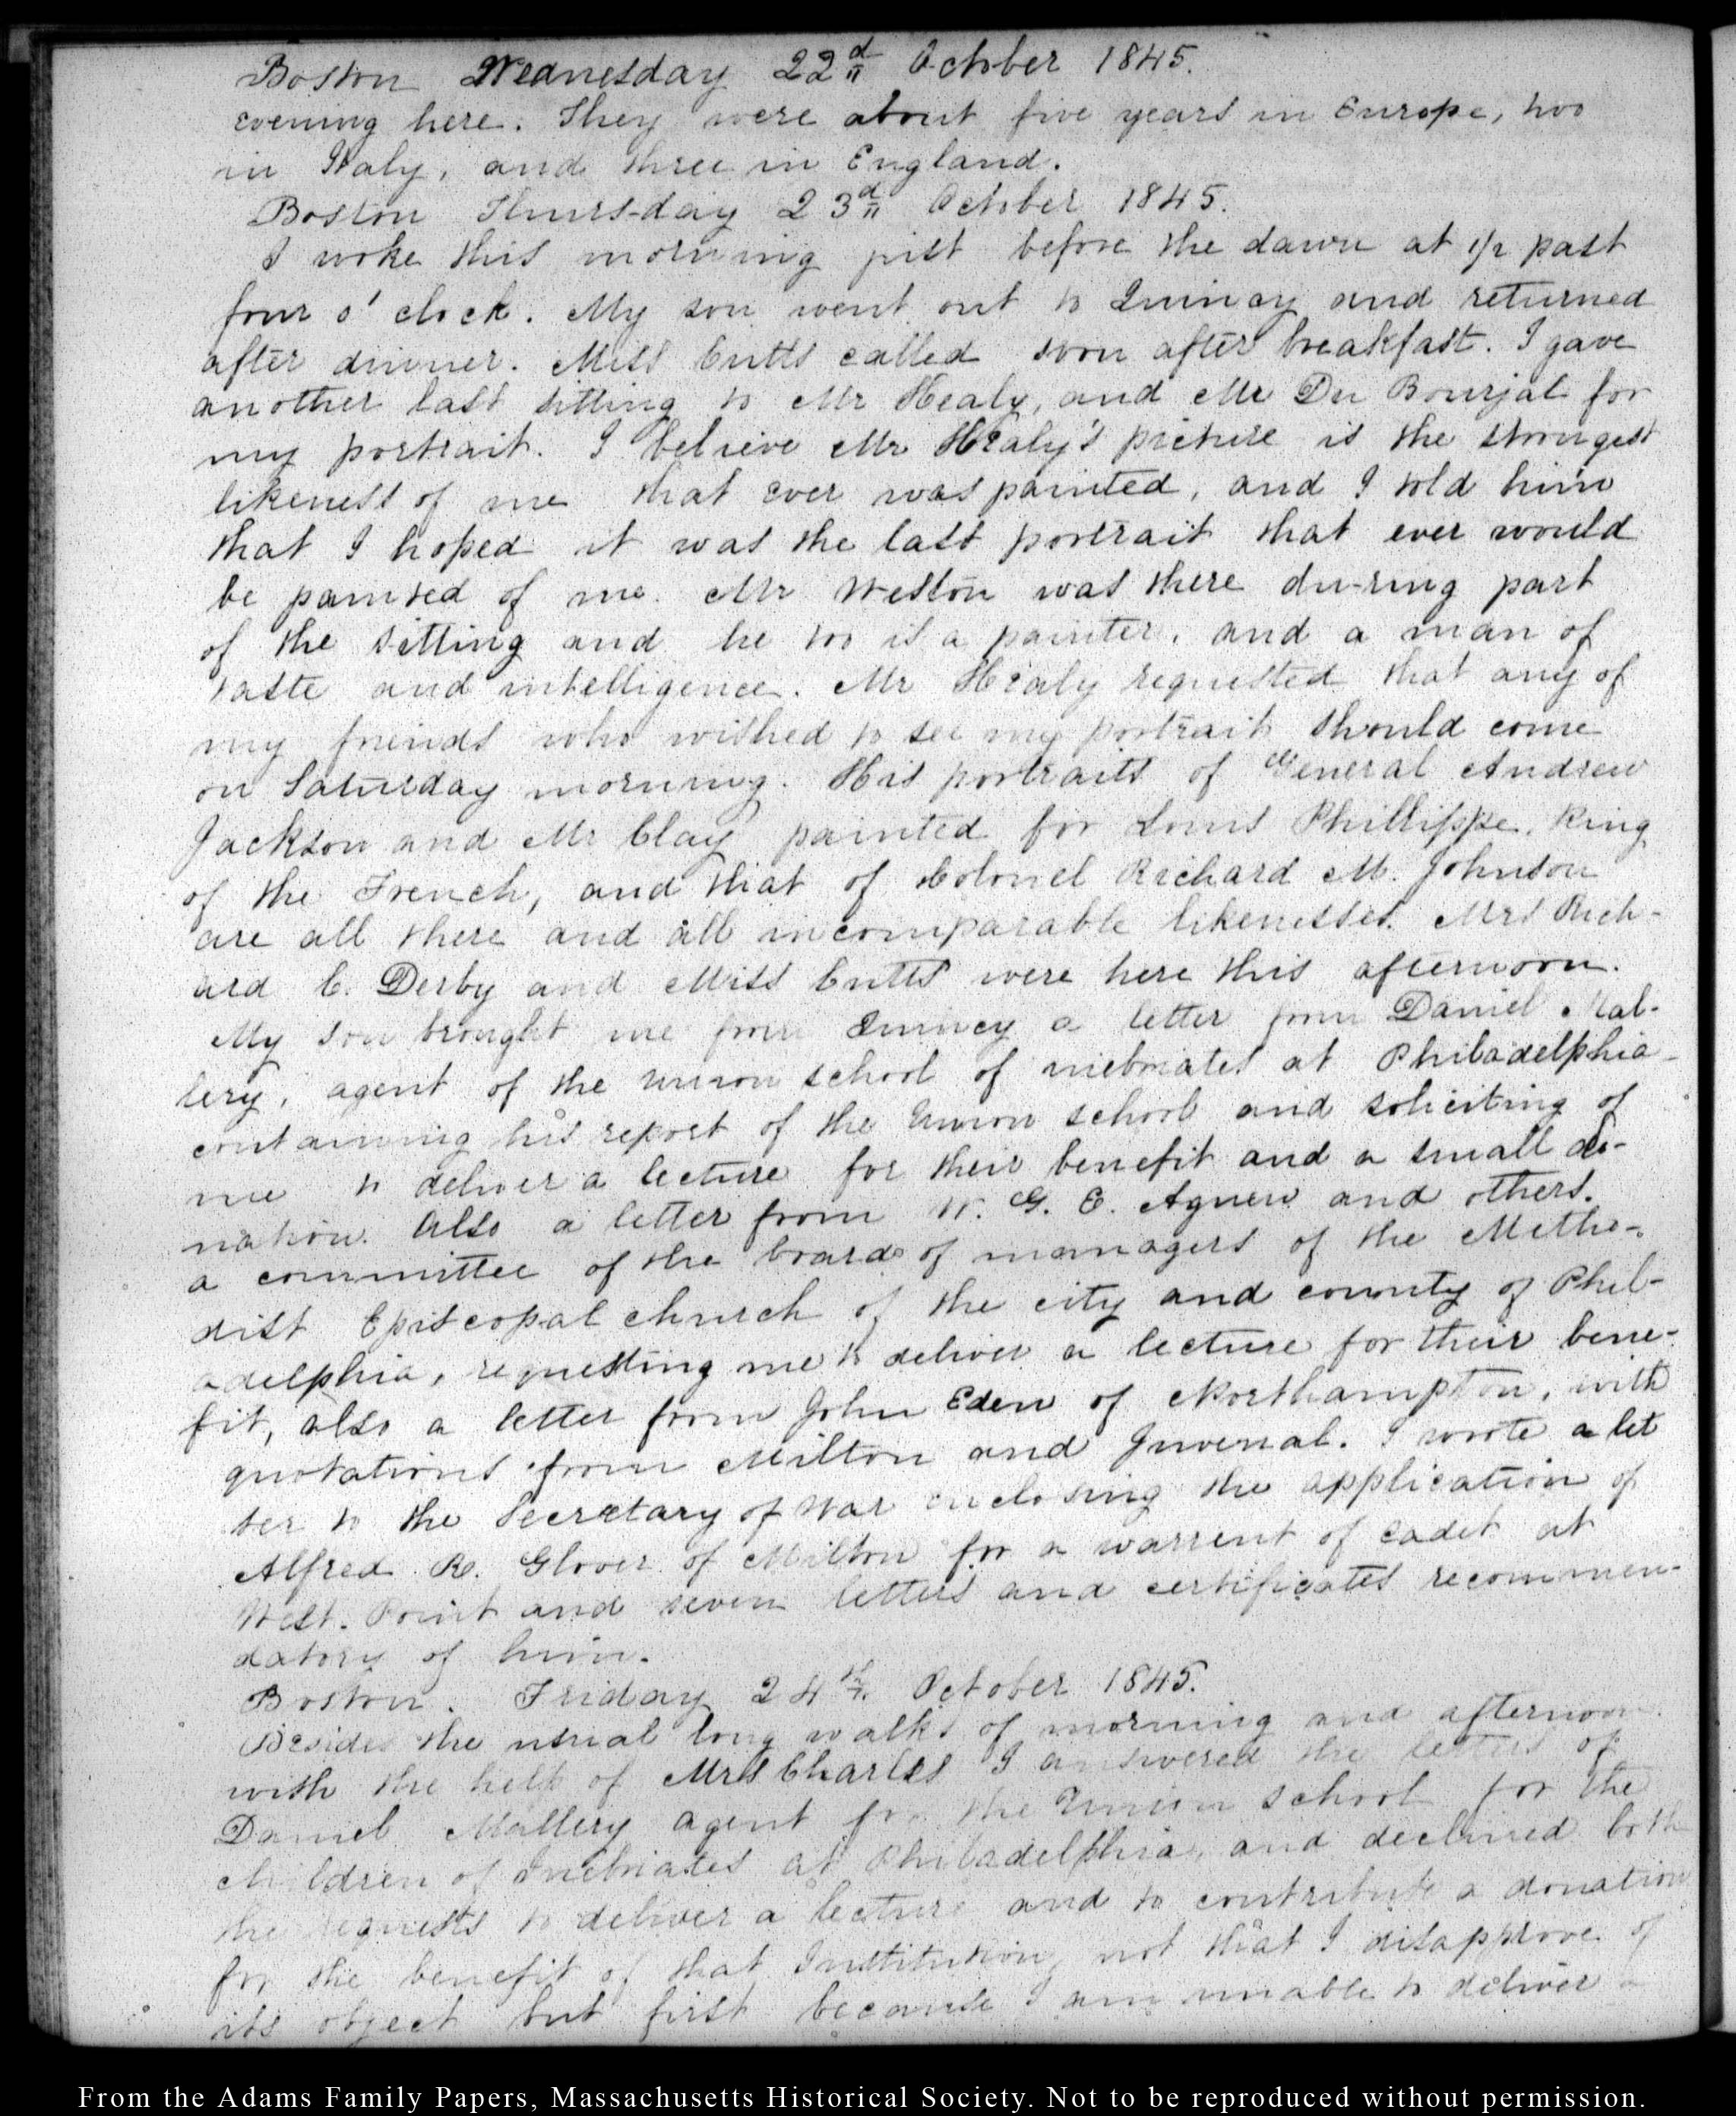 Boston Wednesday 22d October 1845.
evening here. They were about five years in Europe, two
in Italy, and three in England.
Boston Thursday 23d October 1845.
I woke this morning just before the dawn at 1/2 past
four o'clock. My son went out to Quincy and returned
after dinner. Miss Cutts called soon after breakfast. I gave
another last sitting to Mr Healy, and Mr Du Bourjal for
my portrait. I believe Mr Healy's picture is the strongest
likeness of me that ever was painted, and I told him
that I hoped it was the last portrait that ever would
be painted of me. Mr Weston was there du-ring part
of the sitting and he too is a painter, and a man of
taste and intelligence. Mr Healy requested that any of
my friends who wished to see my portrait should come
on Saturday morning. His portraits of General Andrew
Jackson and Mr Clay painted for Louis Phillippe, King
of the French, and that of Colonel Richard M. Johnson
are all there and all incomparable likenesses. Mrs Rich-
ard C. Derby and Miss Cutts were here this afternoon.
My son brought me from Quincy a letter from Daniel Mal-
lery, agent of the union school of inebriates at Philadelphia
containing his report of the Union school and soliciting of
me to deliver a lecture for their benefit and a small do-
nation. Also a letter from W. G. E. Agnew and others.
a committee of the board of managers of the Metho-
dist Episcopal church of the city and county of Phil-
adelphia, requesting me to deliver a lecture for their bene-
fit, also a letter from John Eden of Northampton, with
quotations from Milton and Juvenal. I wrote a let
ter to the Secretary of War enclosing the application of
Alfred R. Glover of Milton for a warrent of cadet at
West. Point and seven letters and certificates recommen-
datory of him.
Boston. Friday 24th. October 1845.
Besides the usual long walks of morning and afternoon.
with the help of Mrs Charles I answered the letters of
Daniel Mallery agent for the Union School for the
children of Inebriates at Philadelphia, and declined both
the requests to deliver a lecture and to contribute a donation
for the benefit of that Institution, not that I disapprove of
its object but first because I am unable to deliver a
From the Adams Family Papers, Massachusetts Historical Society. Not to be reproduced without permission.